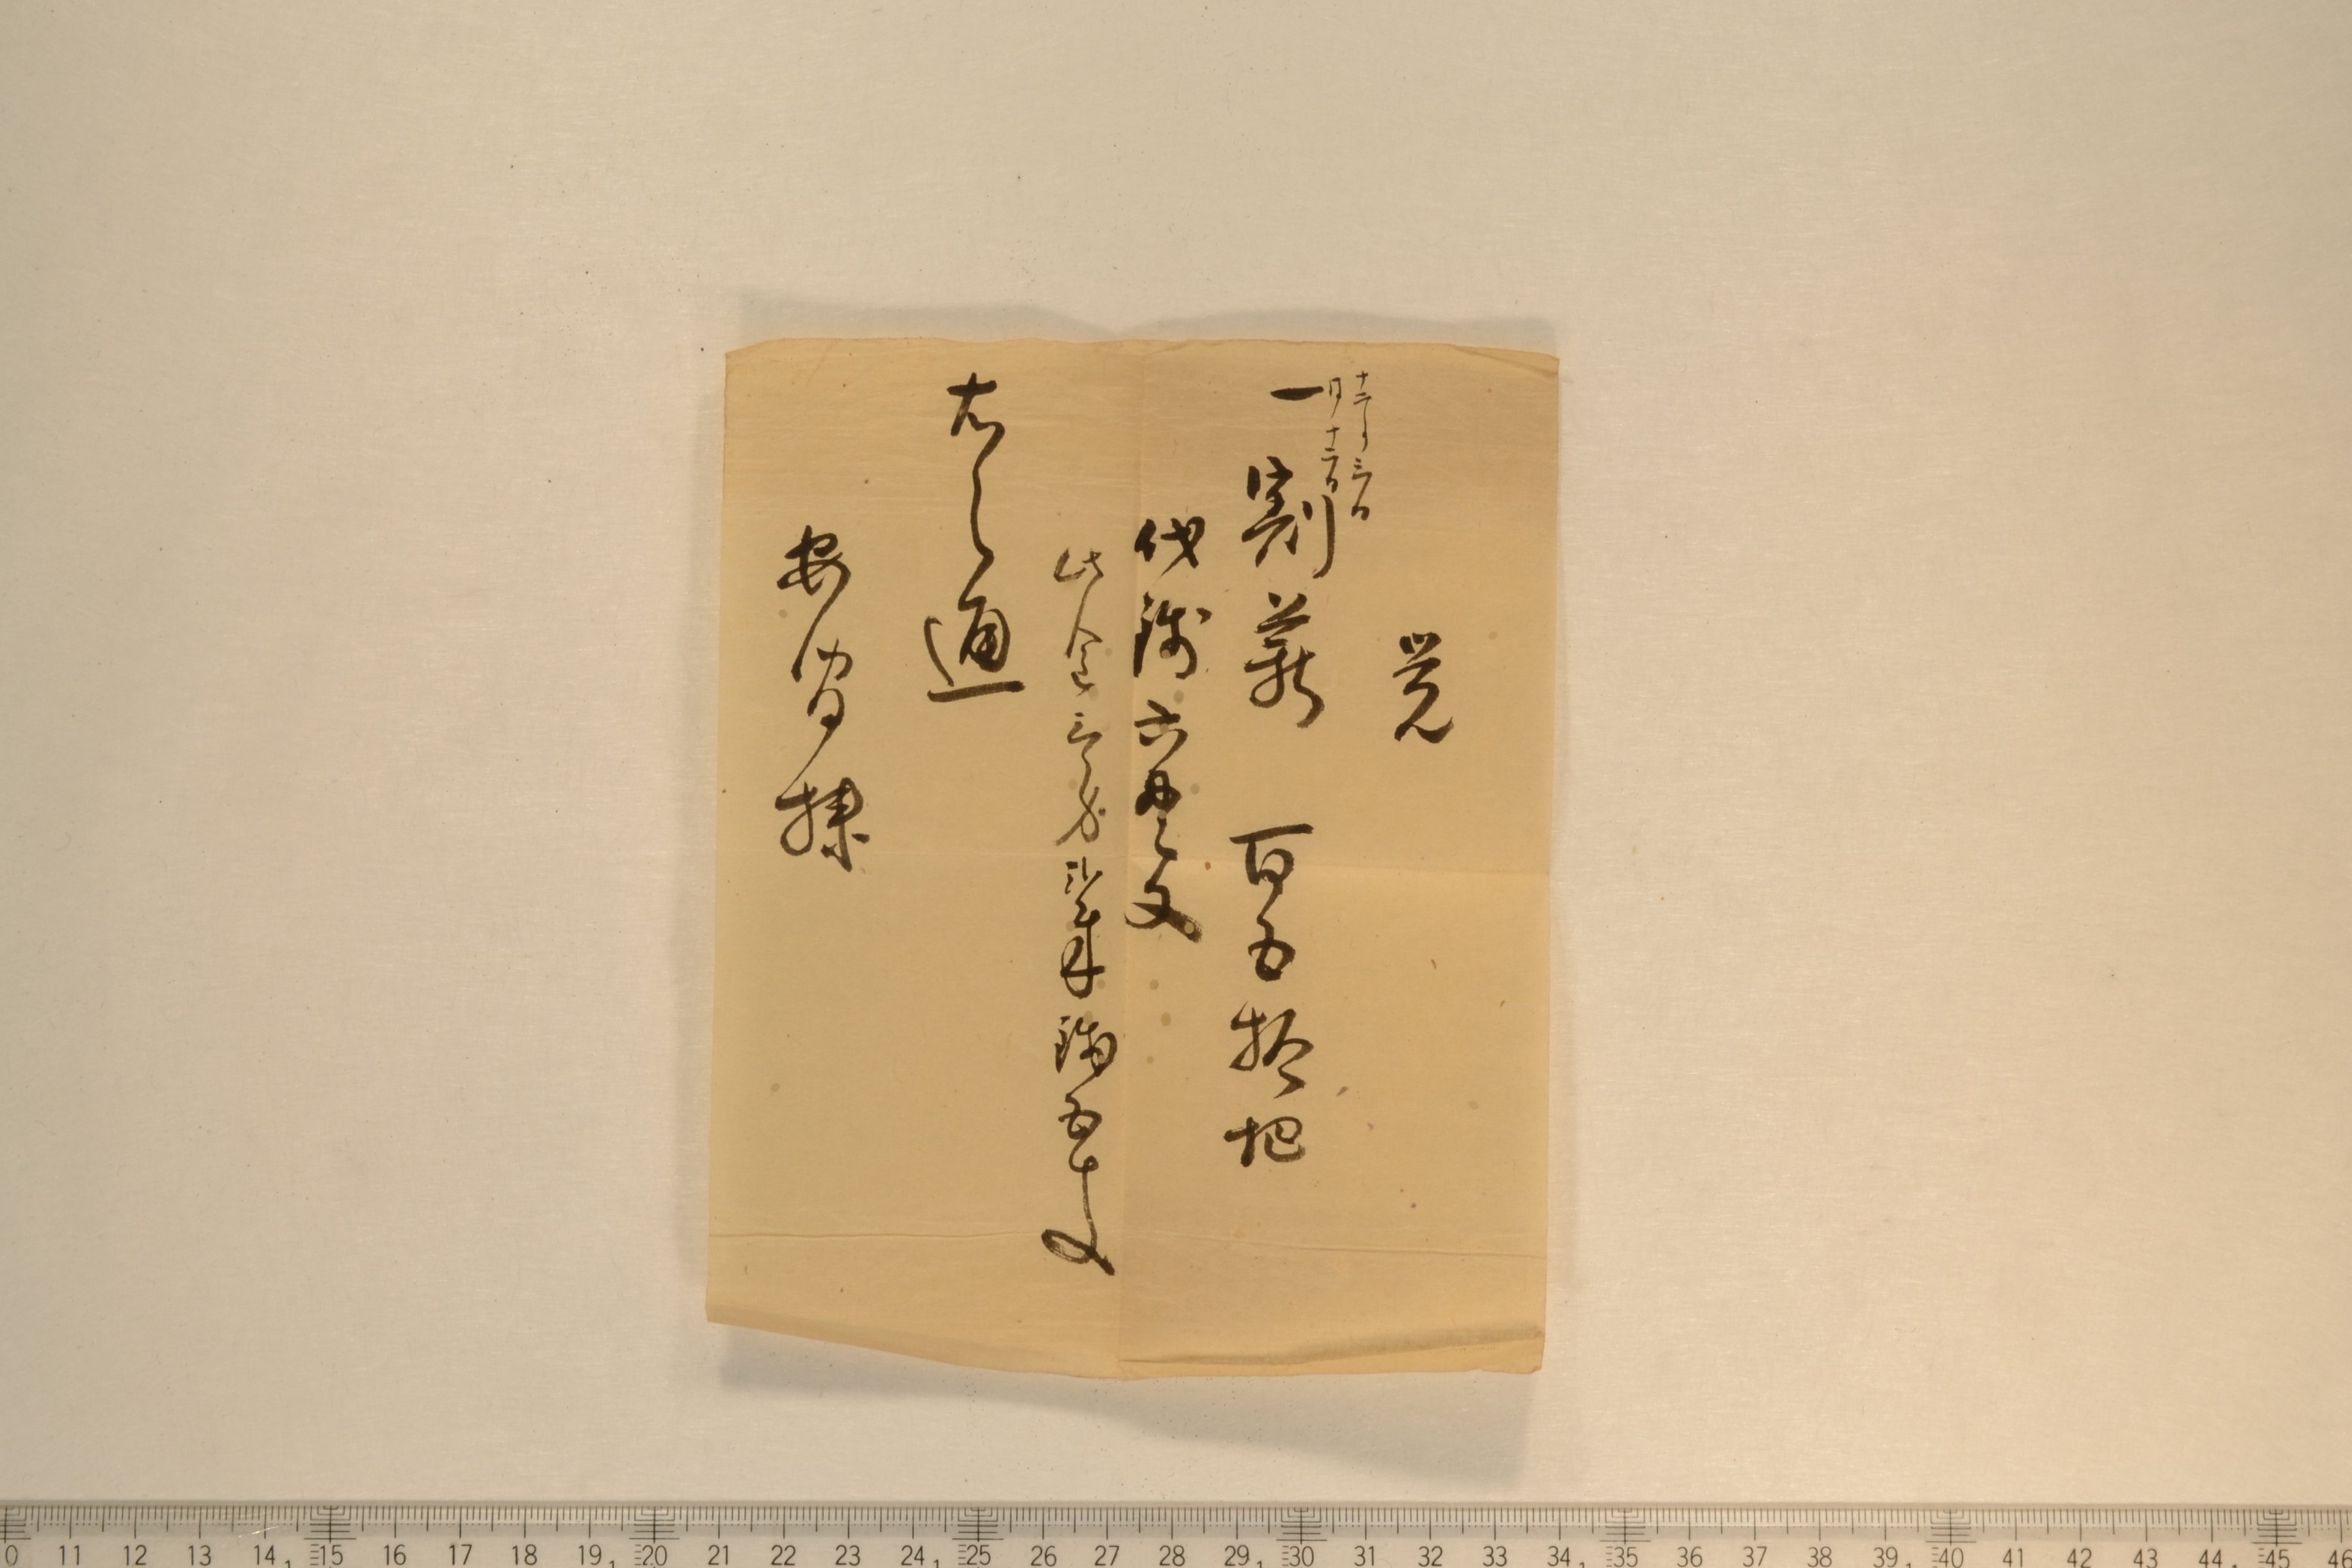 覚
十二月三日
同十二日
一割薪 百五拾把
代銭六〆文
此金三分
銭五十文
右之通
安間様
0 11 12 13 14 15 16 17 18 19 20 21 22 23 24 25 26 27 28 29 30 31 32 33 34 35 36 37 38 39 40 41 42 43 44 45